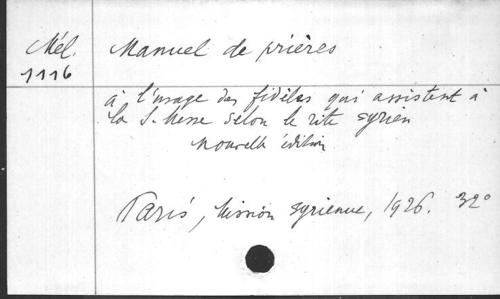 Mél. Manuel de prières
1116
à l'usage des fidèles qui assistent à
la S. Messe selon le rite syrien
Nouvelle édition
Paris, Mission syrienne, 1926. 32°